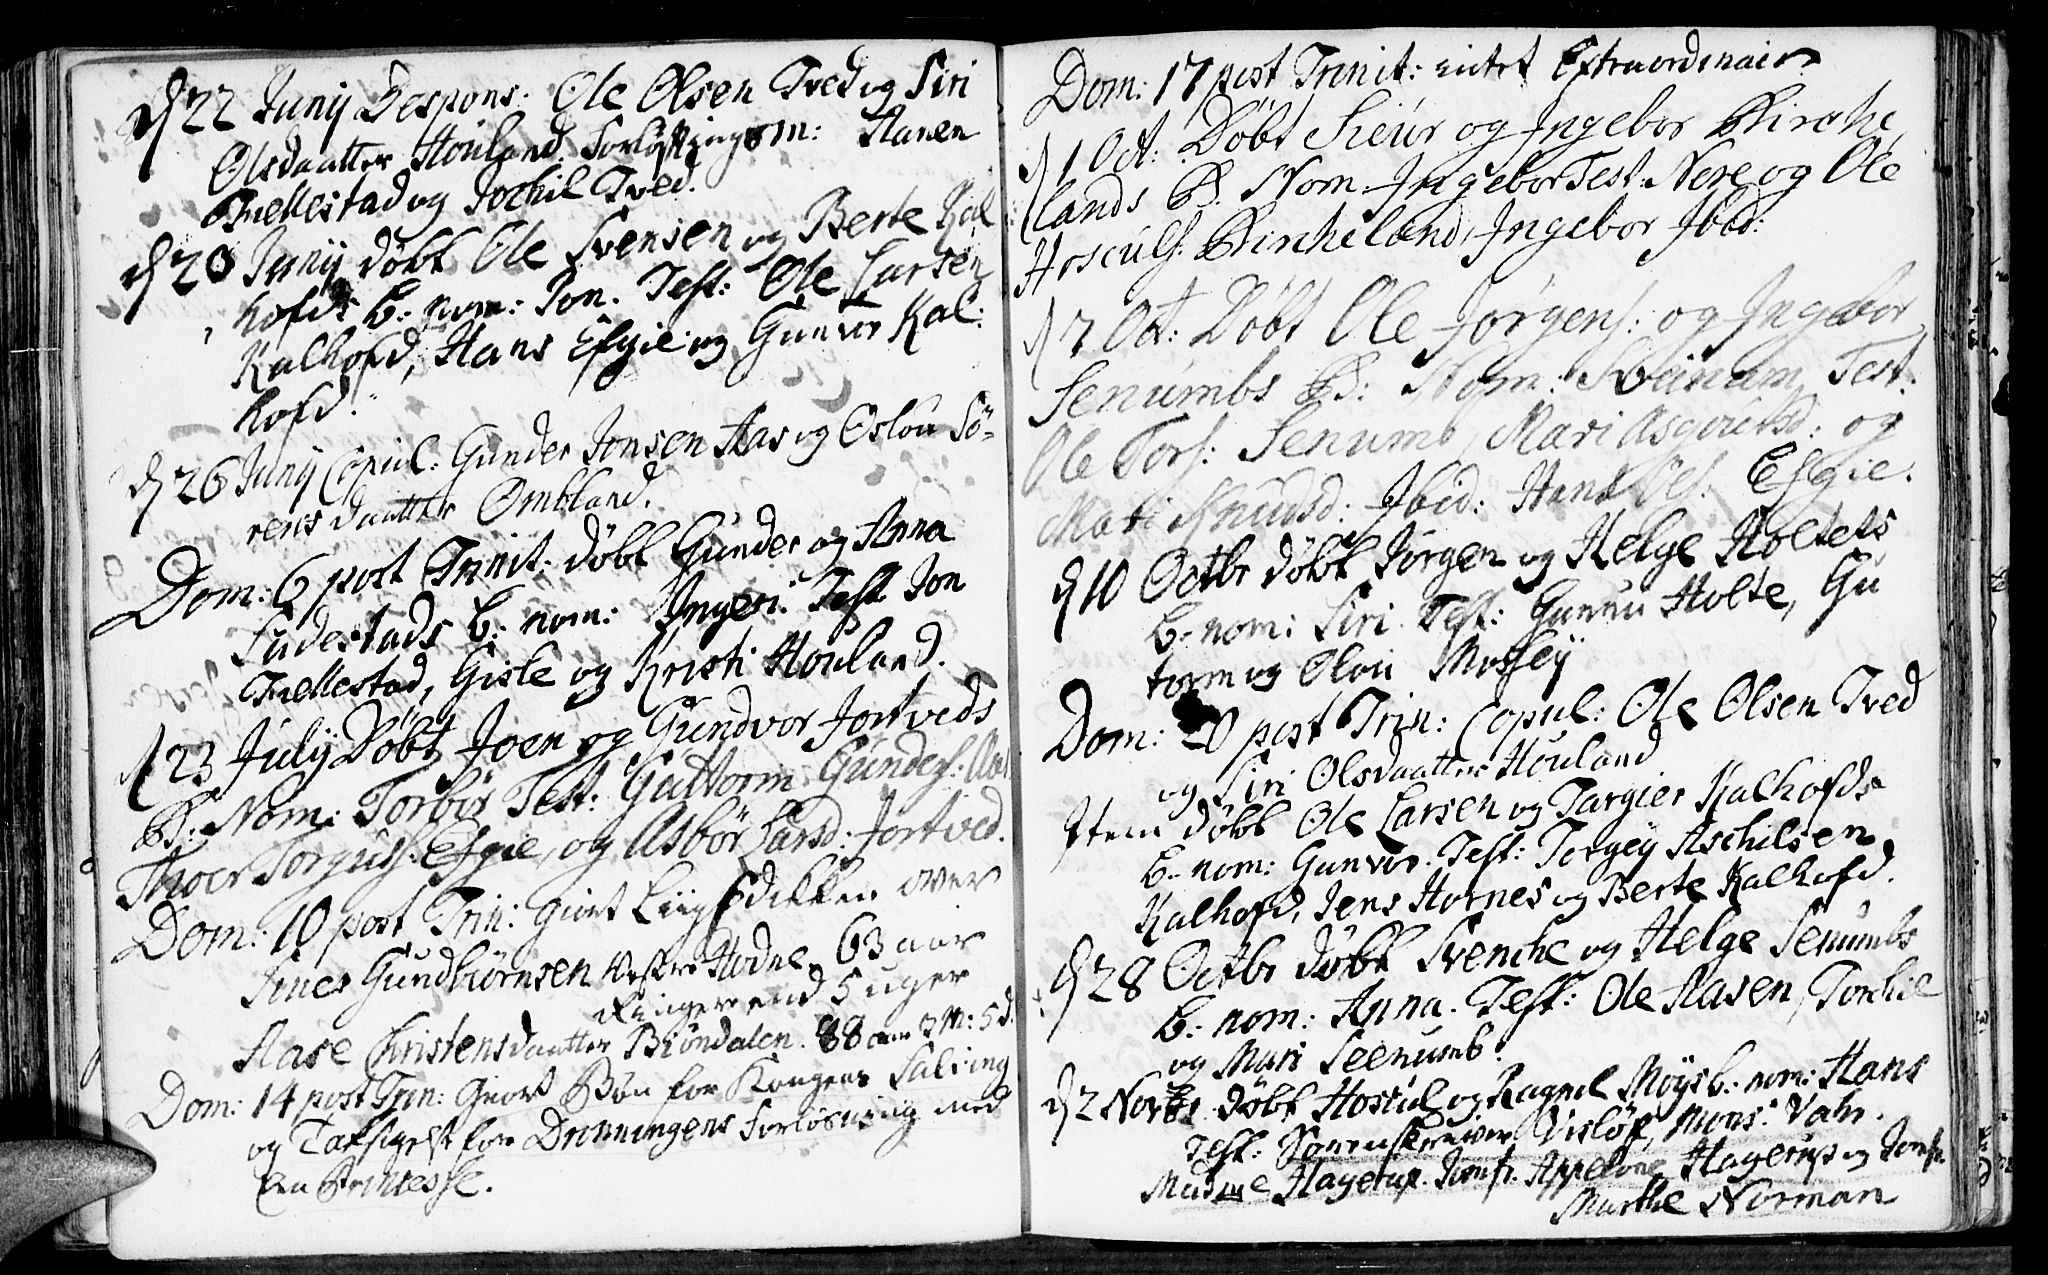 d 22 Junij Despons: Ole Olsen Tved og Siri
Olsdaatter Houland. Forløftningsm: Hanen
Tvellestad og Torkil Tved.
d 20 Junij døbt Ole Svensen og Berte Kal
hofds b: nom: Jon. Test: Ole Larsen
Kalhofd, Hans Efgie og Gunvor Kal:
hofd.
d 26 Junij Copul: Gunder Jonsen Aas og Oslou Sö-
rensdaatter Ombland.
Dom: 6 post Trinit: døbt Gunder og Anna
Sudestads b: nom: Ingeri Test Jon
Tvellestad, Gisle og Kristi Houland.
d 23 Julij Døbt Joen og Gundvor Jortveds
B: Nom: Torbiør Test: Guttorm Gunders:
Thoer Torgius: Efgie, og Asbör Larsd: Jortved.
Dom: 10 post Trin: giort Liigprædikken over
Simes Gundbiørnsen Vestre Hodne 63 aar
Ringere end 5 uger
Aase Christensdaatter Brøndalen. 88 aar 3 M: 5 d.
Dom: 14 post Trin: Giort Bøn for Kongens Salving
og Taksigelse for Dronningens Forløsning med
en Printesse.
Dom: 17 post Trinit: intet Extraordinair
d 1 Oct: Døbt Sieur og Ingebor Birche
lands B. Nom Ingebor Test: Nere og Ole
Hosculs: Bircheland, Ingebor Ibid:
d 7 Oct: Døbt Ole Jørgens: og Ingebor
Senumbs B: Nom: Sveinum Test:
Ole Tors: Senumb, Mari Asgoutsd: og
Mari Knudsd: Ibid: Hans Efgie.
d 10 Octbr døbt Jørgen og Helge Holtets
b: nom: Siri. Test: Gunnu Holte, Gu
torm og Olou Mosfey
Dom: 20 post Trin: Copul: Ole Olsen Tved
og Siri Olsdaatter Houland
Item døbt Ole Larsen og Targier Kalhofds
b: nom: Gunvor. Test: Torgey Aschilsen
Kalhofd, Jens Hornes og Berte Kalhofd.
d 28 Octbr døbt Svenche og Helge Senumbs
b: nom: Anna. Test: Ole Aasen, Torkil
og Mari Seenumb.
d 2 Novbr døbt Hoskul og Ragnil Moys b: nom: Hans
Test: Sorenskriver Visløf, Mons: Vahr.
Madme Hagerup. Jomfr. Appelone Hagerup og Jomfr.
Marthe Norman